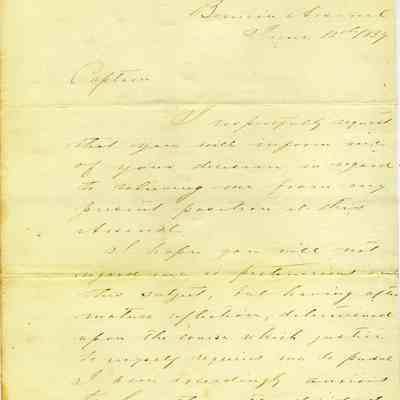 Benicia Arsenal
June 12th 1859
Captain
I respectfully request
that you will inform me
of your decision in regard
to relieving me from my
present position at this
Arsenal.
I hope you will not
regard me as pertinacious on
this subject, but having after
mature reflection, determined
upon the course which justice
to myself required me to pursue
I am accordingly anxious
to